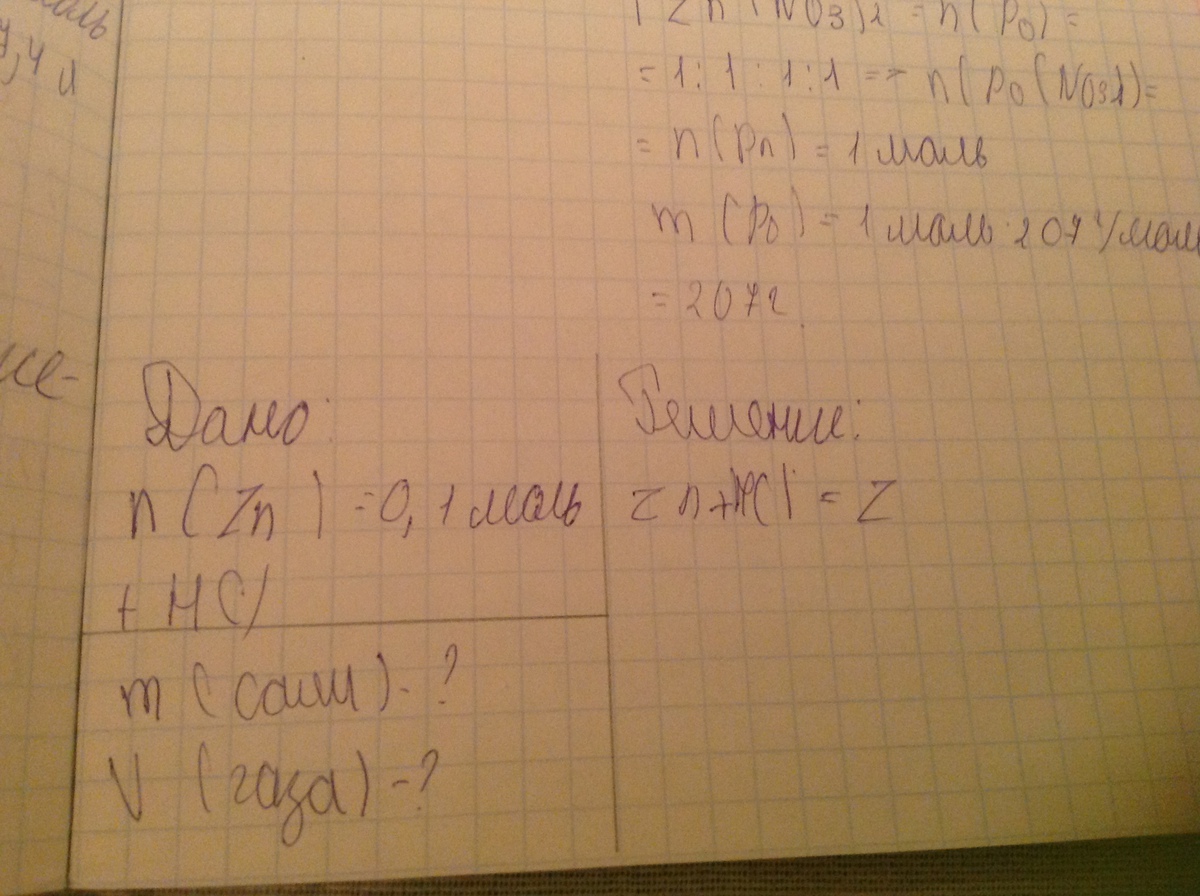 моль
7,4 л
Zn(NO3)2 = n(Pb) =
= 1 : 1 : 1 : 1 => n(Pb(NO3)2) =
= n(Pb) = 1 моль
m (Pb) = 1 моль · 207 г/моль
= 207г.
Дано:
n (Zn) = 0,1 моль
+ HCl
m (соли) - ?
V (газа) - ?
Решение:
Zn + HCl = Z